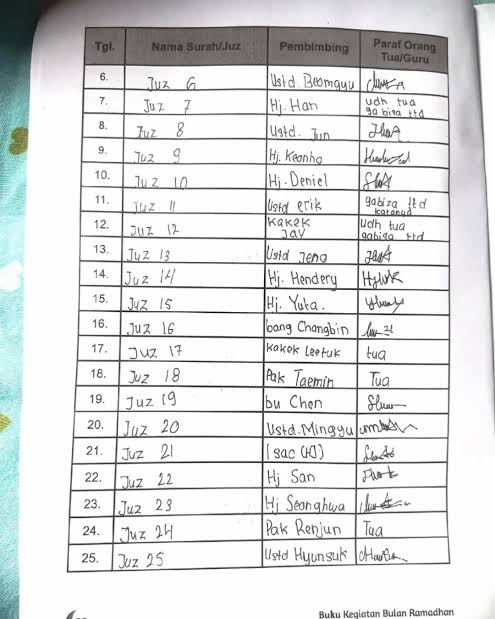 Tgl. Nama Surah/Juz Pembimbing Paraf Orang Tua/Guru
6. Juz 6 Ustd. Beomgyu
7. Juz 7 Hj. Han udh tua gabisa ttd
8. Juz 8 Ustd. Jun
9. Juz 9 Hj. Keonho
10. Juz 10 Hj. Deniel
11. Juz 11 Ustd erik gabisa ttd katanya
12. Juz 12 Kakek Jay Udh tua gabisa ttd
13. Juz 13 Ustd Jeno
14. Juz 14 Hj. Hendery
15. Juz 15 Hj. Yuta.
16. Juz 16 bang Changbin
17. Juz 17 Kakek Leetuk tua
18. Juz 18 Pak Taemin Tua
19. Juz 19 bu Chen
20. Juz 20 Ustd. Mingyu
21. Juz 21 Isac (HJ)
22. Juz 22 Hj San
23. Juz 23 Hj Seonghwa
24. Juz 24 Pak Renjun Tua
25. Juz 25 Ustd Hyunsuk
Buku Kegiatan Bulan Ramadhan